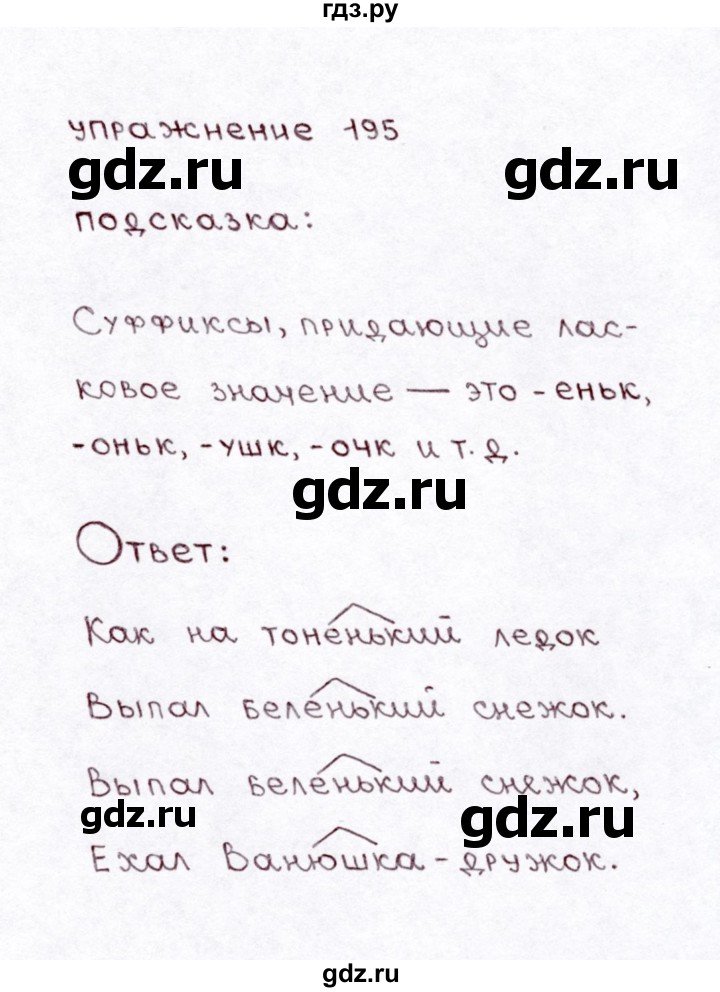 гдз.ру
упражнение 195
gdz.ru gdz.ru
подсказка:
Суффиксы, придающие лас-
ковое значение — это -еньк,
-оньк, -ушк, -очк и т. д.
gdz.ru
Ответ:
Как на тоненький ледок
Выпал беленький снежок.
Выпал беленький снежок,
gdz.ru gdz.ru
Ехал Ванюшка - дружок.
gdz.ru